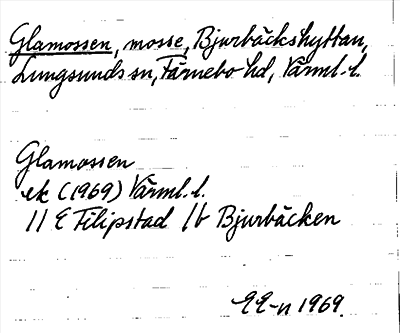 Glamossen, mosse, Bjurbäckshyttan,
Lungsunds sn, Färnebo hd, Värml. l.
Glamossen
ek (1969) Värml. l.
11 E Filipstad 1 b Bjurbäcken
EE-n 1969.